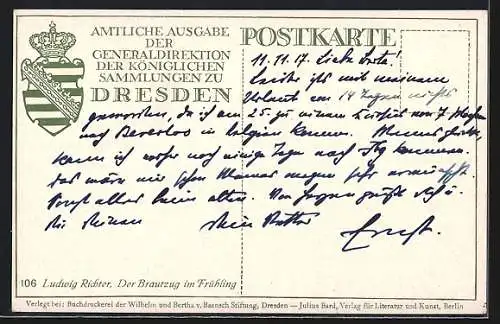 AMTLICHE AUSGABE
DER
GENERALDIREKTION
DER KÖNIGLICHEN
SAMMLUNGEN ZU
DRESDEN
POSTKARTE
11.11.17. Liebe
Leider ist mit meinem
Urlaub von 14 Tagen nichts
geworden, da ich am 25. zu einem von 7 Wochen
nach Beverloo in Belgien komme.
kann ich vorher noch einige Tage nach kommen.
Das wäre mir schon Mamas wegen sehr erwünscht
Sonst alles beim alten. Von grüßt Dich u.
die Deinen Dein Vetter
Ernst.
106 Ludwig Richter, Der Brautzug im Frühling
Verlegt bei: Buchdruckerei der Wilhelm und Bertha v. Baensch Stiftung, Dresden — Julius Bard, Verlag für Literatur und Kunst, Berlin